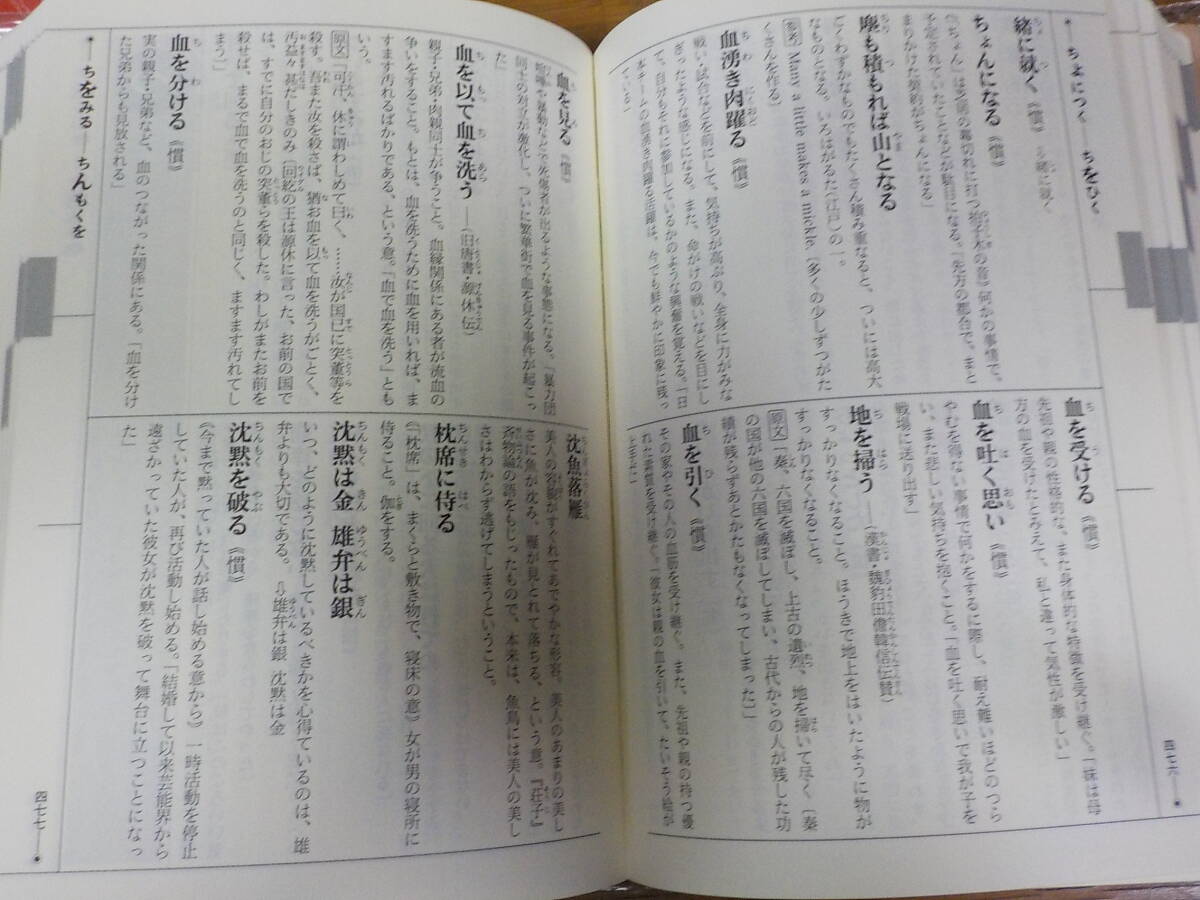 ちょにつく——ちをひく
緒に就く《慣》⇨緒に就く
ちょんになる《慣》
(「ちょん」は芝居の幕切れに打つ拍子木の音)何かの事情で、
予定されていたことなどが駄目になる。「先方の都合で、まと
まりかけた契約がちょんになる」
塵も積もれば山となる
ごくわずかなものでもたくさん積み重なると、ついには高大
なものとなる。いろはがるた(江戸)の一。
[参考] Many a little makes a mickle.(多くの少しずつがた
くさんを作る)
血湧き肉躍る《慣》
戦い・試合などを前にして、気持ちが高ぶり、全身に力がみな
ぎったような感じになる。また、命がけの戦いなどを目にし
て、自分もそれに参加しているかのような興奮を覚える。「日
本チームの血湧き肉躍る活躍は、今でも鮮やかに印象に残っ
ている」
血を受ける《慣》
先祖や親の性格的な、また身体的な特徴を受け継ぐ。「妹は母
方の血を受けたとみえて、私と違って気性が激しい」
血を吐く思い《慣》
やむを得ない事情で何かをするに際し、耐え難いほどのつら
い、また悲しい気持ちを抱くこと。「血を吐く思いで我が子を
戦場に送り出す」
地を掃う——(漢書・魏豹田儋韓信伝賛)
すっかりなくなること。ほうきで地上をはいたように物が
すっかりなくなること。
[原文]「秦、六国を滅ぼし、上古の遺烈、地を掃いて尽く(秦
の国が他の六国を滅ぼしてしまい、古代からの人が残した功
績が残らずあとかたもなくなってしまった)」
血を引く《慣》
その家やその人の血筋を受け継ぐ。また、先祖や親の持つ優
れた素質を受け継ぐ。「彼女は親の血を引いて、たいそう絵が
上手だ」
四七六
血を見る《慣》
喧嘩や暴動などで死傷者が出るような事態になる。「暴力団
同士の対立が激化し、ついに繁華街で血を見る事件が起こっ
た」
血を以て血を洗う——(旧唐書・源休伝)
親子・兄弟・肉親同士が争うこと。血縁関係にある者が流血の
争いをすること。もとは、血を洗うために血を用いれば、ま
すます汚れるばかりである、という意。「血で血を洗う」とも
いう。
[原文]「可汗、休に謂わしめて曰く、……汝が国已に突董等を
殺す。吾また汝を殺さば、猶お血を以て血を洗うがごとく、
汚益々甚だしきのみ(回紇の王は源休に言った、お前の国で
は、すでに自分のおじの突董らを殺した。わしがまたお前を
殺せば、まるで血で血を洗うのと同じく、ますます汚れてし
まう)」
血を分ける《慣》
実の親子・兄弟など、血のつながった関係にある。「血を分け
た兄弟からも見放される」
沈魚落雁
美人の容貌がすぐれてあでやかな形容。美人のあまりの美し
さに魚が沈み、雁が見とれて落ちる、という意。『荘子』
斉物論の語をもじったもので、本来は、魚鳥には美人の美し
さはわからず逃げてしまうということ。
枕席に侍る
(「枕席」は、まくらと敷き物で、寝床の意)女が男の寝所に
侍ること。伽をする。
沈黙は金 雄弁は銀
いつ、どのように沈黙しているべきかを心得ているのは、雄
弁よりも大切である。⇩雄弁は銀 沈黙は金
沈黙を破る《慣》
(今まで黙っていた人が話し始める意から)一時活動を停止
していた人が、再び活動し始める。「結婚して以来芸能界から
遠ざかっていた彼女が沈黙を破って舞台に立つことになっ
た」
ちをみる——ちんもくを
四七七